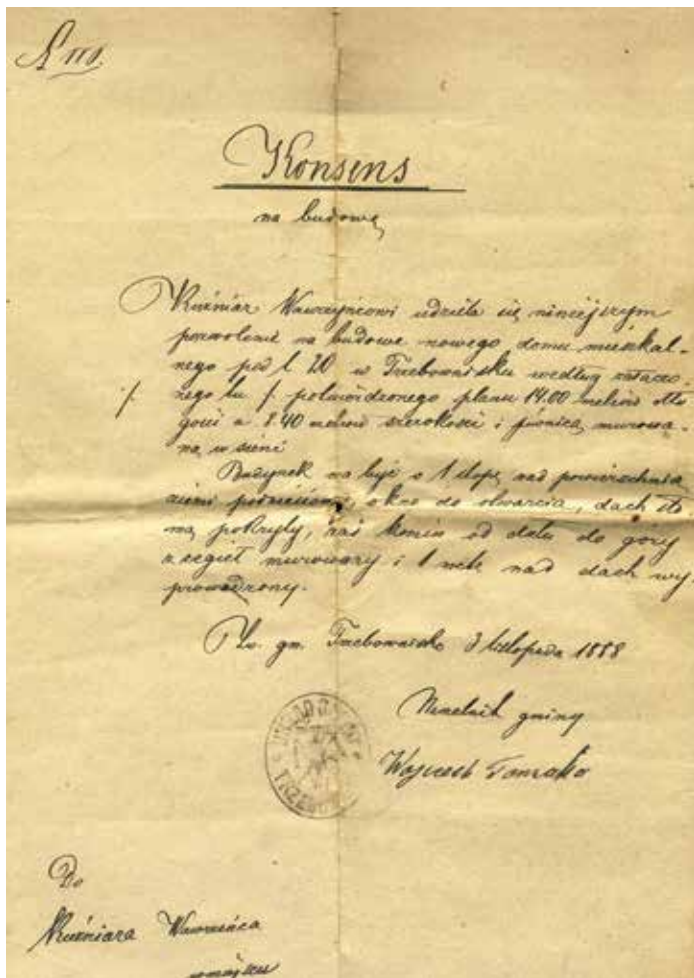 Konsens
na budowę
Kuźniar Wawrzyńcowi udziela się niniejszym
pozwolenie na budowę nowego domu mieszkal-
nego pod l 20 w Trzebownisku według załączo-
nego tu /. potwierdzonego planu 14.00 metrów dłu
gości a 8.40 metrów szerokości i piwnicą murowa-
ną w sieni
Budynek ma być o 1 stopę nad powierzchnią
ziemi podniesiony, okna do otwarcia, dach sło
mą pokryty, zaś komin od dołu do góry
z cegieł murowany i 1 metr nad dach wy-
prowadzony.
gm. Trzebownisko 3 listopada 1888
Naczelnik gminy
Wojciech Tomaka
Do
Kuźniara Wawrzeńca
w miejscu